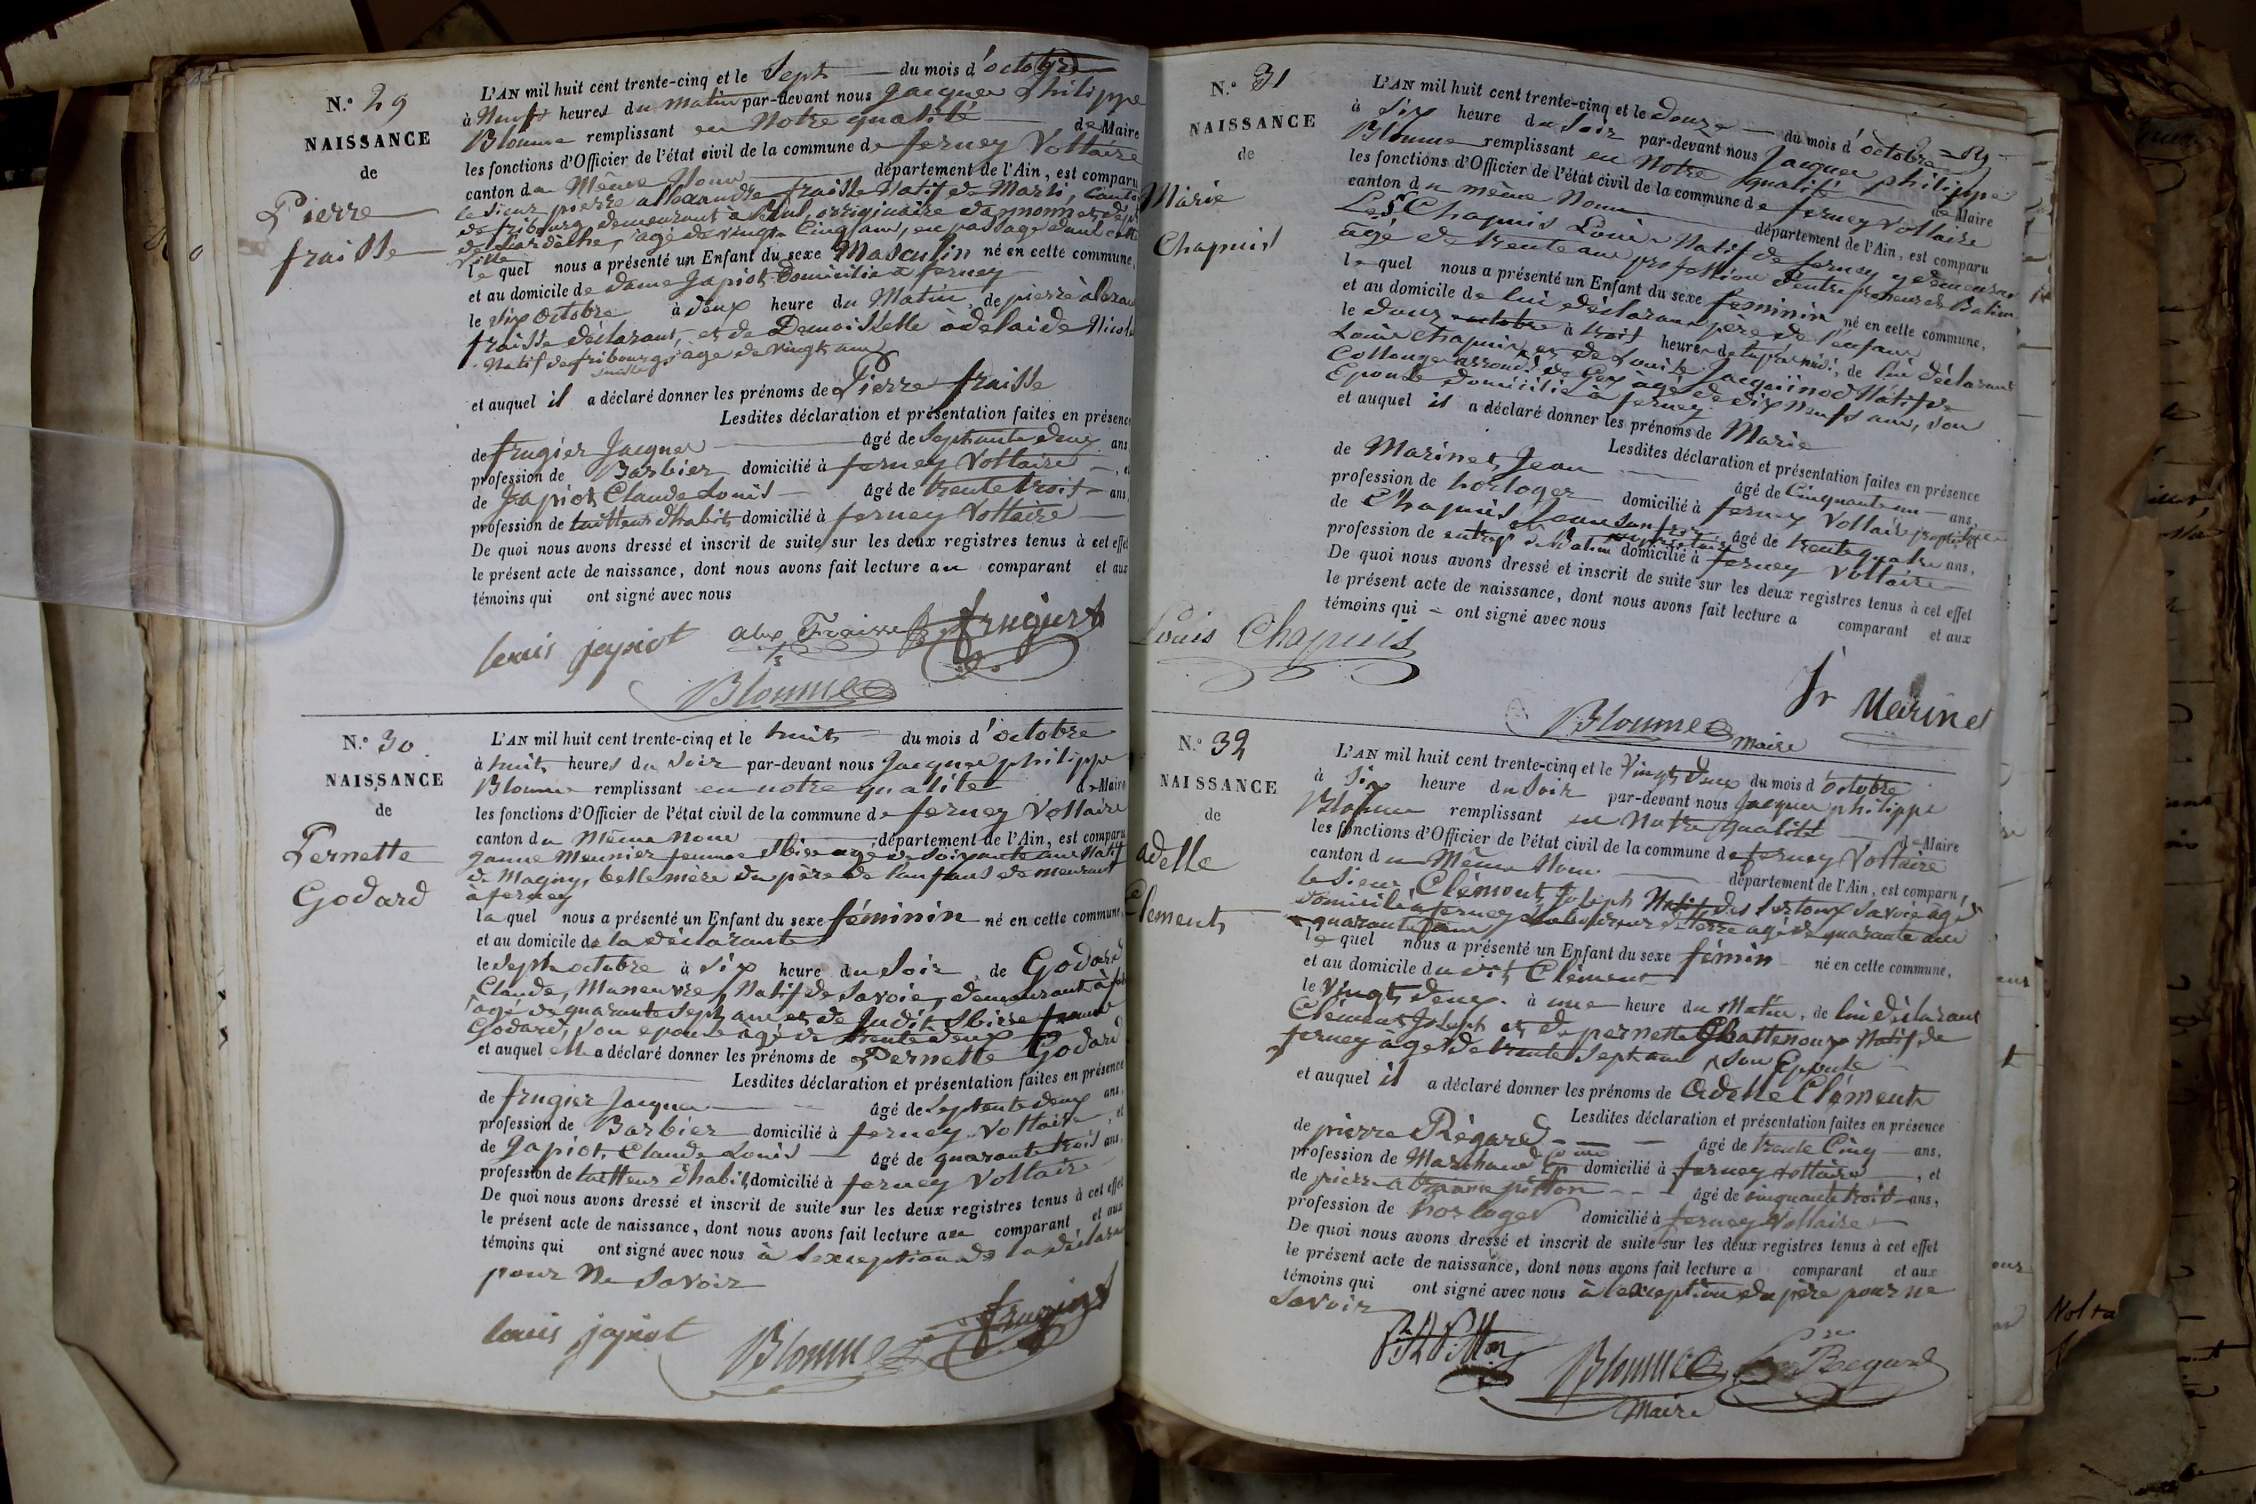 N.º 29
NAISSANCE
de
Pierre
fraisse
L'AN mil huit cent trente-cinq et le Sept du mois d'octobre
à Neuf heures du matin par-devant nous Jacques philippe
Blonme remplissant en Notre qualité de Maire
les fonctions d'Officier de l'état civil de la commune de ferney Voltaire
canton du Même Nom département de l'Ain, est comparu
le Sieur pierre allexandre fraisse Natif de Marti, Canton
de fribourg demeurant à originaire
de âgé de vingt Cinq ans, en passage dans cette
ville
lequel nous a présenté un Enfant du sexe Masculin né en cette commune,
et au domicile de dame Japiot Domicilié à ferney
le Six octobre à deux heure du Matin, de pierre
fraisse déclarant, et de Demoiselle àdelaide Nicol
Natif de fribourg âgé de Vingt ans
suisse
et auquel il a déclaré donner les prénoms de Pierre fraisse
Lesdites déclaration et présentation faites en présence
de frugier Jacques âgé de Septante deux ans
profession de Barbier domicilié à ferney Voltaire, et
de Japiot Claude Louis âgé de trente trois ans,
profession de tailleur d'habit domicilié à ferney Voltaire
De quoi nous avons dressé et inscrit de suite sur les deux registres tenus à cet effet
le présent acte de naissance, dont nous avons fait lecture au comparant et aux
témoins qui ont signé avec nous
louis japiot alex Fraisse frugier
Blonme
N.º 30
NAISSANCE
de
Pernette
Godard
L'AN mil huit cent trente-cinq et le huit du mois d'octobre
à huit heures du Soir par-devant nous Jacques philippe
Blonme remplissant en notre qualité de Maire
les fonctions d'Officier de l'état civil de la commune de ferney Voltaire
canton du Même nom département de l'Ain, est comparu
Meunier femme âgé de Soixante ans Natif
de Magny, belle mère du père de l'enfant demeurant
à ferney
laquel nous a présenté un Enfant du sexe féminin né en cette commune
et au domicile de la déclarante
le Sept octobre à Six heure du Soir, de Godard
Claude, Maneuvre, Natif de Savoie, demeurant à
âgé de quarante Sept ans et de Judit femme
Godard, son epouse âgé de trente deux
et auquel elle a déclaré donner les prénoms de Pernette Godard
Lesdites déclaration et présentation faites en présence
de frugier Jacques âgé de Septante deux ans,
profession de Barbier domicilié à ferney Voltaire, et
de Japiot, Claude Louis âgé de quarante trois ans,
profession de tailleur d'habit, domicilié à ferney Voltaire
De quoi nous avons dressé et inscrit de suite sur les deux registres tenus à cet effet
le présent acte de naissance, dont nous avons fait lecture au comparant et aux
témoins qui ont signé avec nous à l'exception de la déclarante
pour Ne Savoir
louis japiot Blonme frugier
N.º 31
NAISSANCE
de
Marie
Chapuis
L'AN mil huit cent trente-cinq et le Douze du mois d'octobre
à Six heure du Soir par-devant nous Jacques philippe
Blonme remplissant en Notre qualité de Maire
les fonctions d'Officier de l'état civil de la commune de ferney Voltaire
canton du même Nom département de l'Ain, est comparu
Le S. Chapuis Louis Natif de ferney y demeurant
âgé de trente ans profession d'entrepreneur de Batim
lequel nous a présenté un Enfant du sexe feminin né en cette commune,
et au domicile de lui déclarant père de l'enfant
le douz octobre à trois heure de midi, de lui déclarant
Louis Chapuis, et de Louise Jacquinod Natif de
Collonge arrond. de Gex âgé de dix Neuf ans, son
Epouse domicilié à ferney
et auquel il a déclaré donner les prénoms de Marie
Lesdites déclaration et présentation faites en présence
de Marinet Jean âgé de Cinquante un ans,
profession de horloger domicilié à ferney Voltaire, et
de Chapuis Jean son frère âgé de trente quatre ans,
profession de entrep. de Batim domicilié à ferney Voltaire
De quoi nous avons dressé et inscrit de suite sur les deux registres tenus à cet effet
le présent acte de naissance, dont nous avons fait lecture a comparant et aux
témoins qui ont signé avec nous
Louis Chapuis
Jn Marinet
Blonme maire
N.º 32
NAISSANCE
de
adelle
Clement
L'AN mil huit cent trente-cinq et le Vingt deux du mois d'octobre
à Six heure du Soir par-devant nous Jacques philippe
Blonme remplissant en Notre qualité de Maire
les fonctions d'Officier de l'état civil de la commune de ferney Voltaire
canton du Même Nom département de l'Ain, est comparu
le Sieur Clément Joseph Natif des Savoie âgé
domicilié à ferney laboureur de terre âgé de quarante ans
quarante ans
lequel nous a présenté un Enfant du sexe fémin né en cette commune,
et au domicile du dit Clément
le Vingt deux à une heure du Matin, de lui déclarant
Clément Joseph et de pernette Chattenoux Natif de
ferney âgé de trente Sept ans, son Epouse
et auquel il a déclaré donner les prénoms de Adelle Clément
Lesdites déclaration et présentation faites en présence
de pierre Régard âgé de trente Cinq ans,
profession de Marchand domicilié à ferney Voltaire, et
de pierre pitton âgé de cinquante trois ans,
profession de horloger domicilié à ferney Voltaire
De quoi nous avons dressé et inscrit de suite sur les deux registres tenus à cet effet
le présent acte de naissance, dont nous avons fait lecture a comparant et aux
témoins qui ont signé avec nous à l'exception du père pour ne
Savoir
Pitton Blonme Regard
Maire